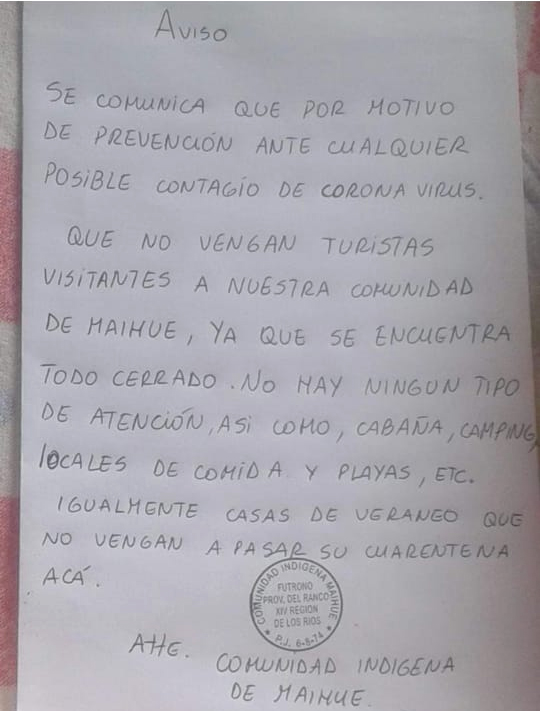 AVISO
SE COMUNICA QUE POR MOTIVO
DE PREVENCIÓN ANTE CUALQUIER
POSIBLE CONTAGIO DE CORONA VIRUS.
QUE NO VENGAN TURISTAS
VISITANTES A NUESTRA COMUNIDAD
DE MAIHUE, YA QUE SE ENCUENTRA
TODO CERRADO. NO HAY NINGUN TIPO
DE ATENCIÓN, ASI COMO, CABAÑA, CAMPING,
LOCALES DE COMIDA Y PLAYAS, ETC.
IGUALMENTE CASAS DE VERANEO QUE
NO VENGAN A PASAR SU CUARENTENA
ACÁ.
COMUNIDAD INDIGENA MAIHUE
FUTRONO
PROV. DEL RANCO
XIV REGION
DE LOS RIOS
P.J. 6-8-74
Atte. COMUNIDAD INDIGENA
DE MAIHUE.